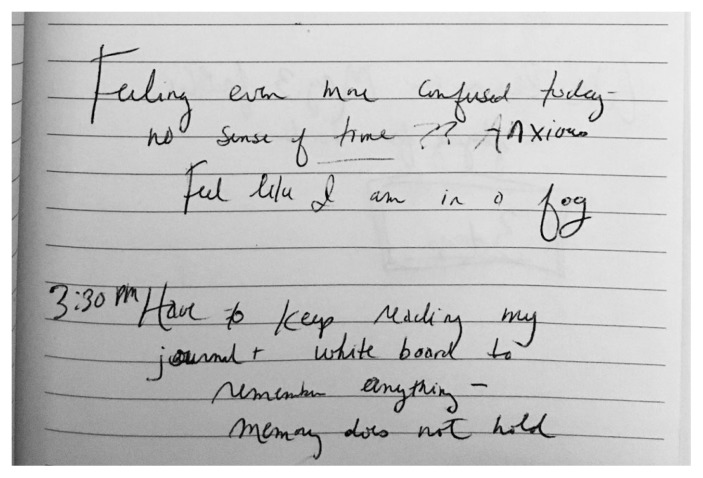 Feeling even more confused today-
no sense of time ?? Anxious
Feel like I am in a fog
3:30 PM Have to keep reading my
journal + white board to
remember anything -
memory does not hold